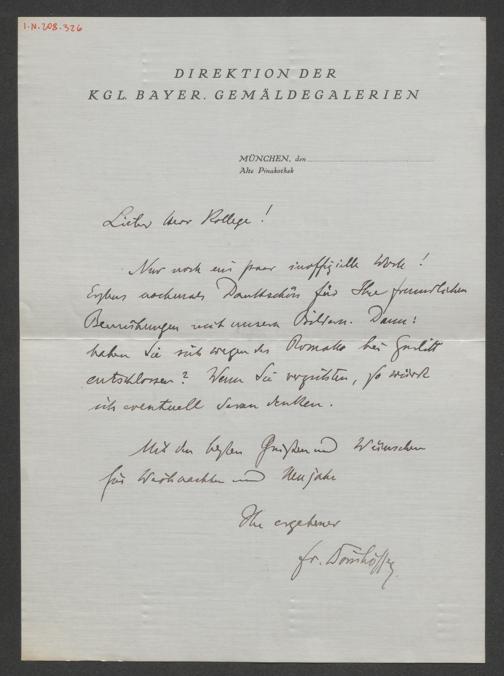 I.N. 208.326
DIREKTION DER
KGL. BAYER. GEMÄLDEGALERIEN
MÜNCHEN, den
Alte Pinakothek
Lieber Herr Kollege!
Nur noch ein paar inoffizielle Worte!
Erstens nochmals Dankschön für Ihre freundlichen
Bemühungen mit unseren Bildern. Dann:
haben Sie sich wegen des Romako bei Gurlitt
entschlossen? Wenn Sie verzichten, so würde
ich eventuell daran denken.
Mit den besten Grüßen und Wünschen
für Weihnachten und Neujahr
Ihr ergebener
Fr. Dörnhöffer